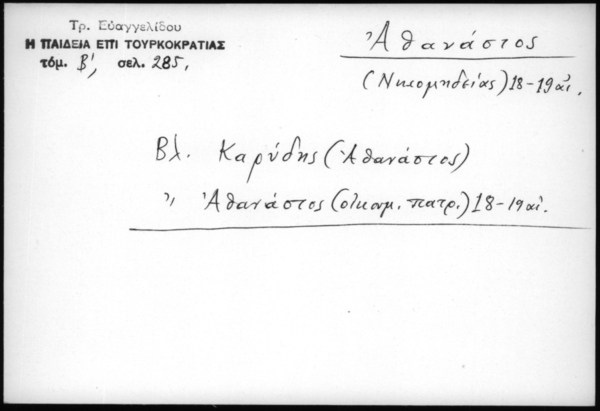 Τρ. Εὐαγγελίδου
Η ΠΑΙΔΕΙΑ ΕΠΙ ΤΟΥΡΚΟΚΡΑΤΙΑΣ
τόμ. Β', σελ. 285,
Ἀθανάσιος
(Νικομηδείας) 18-19 αἰ.
Βλ. Καρύδης (Ἀθανάσιος)
" Ἀθανάσιος (οἰκουμ. πατρ.) 18-19 αἰ.